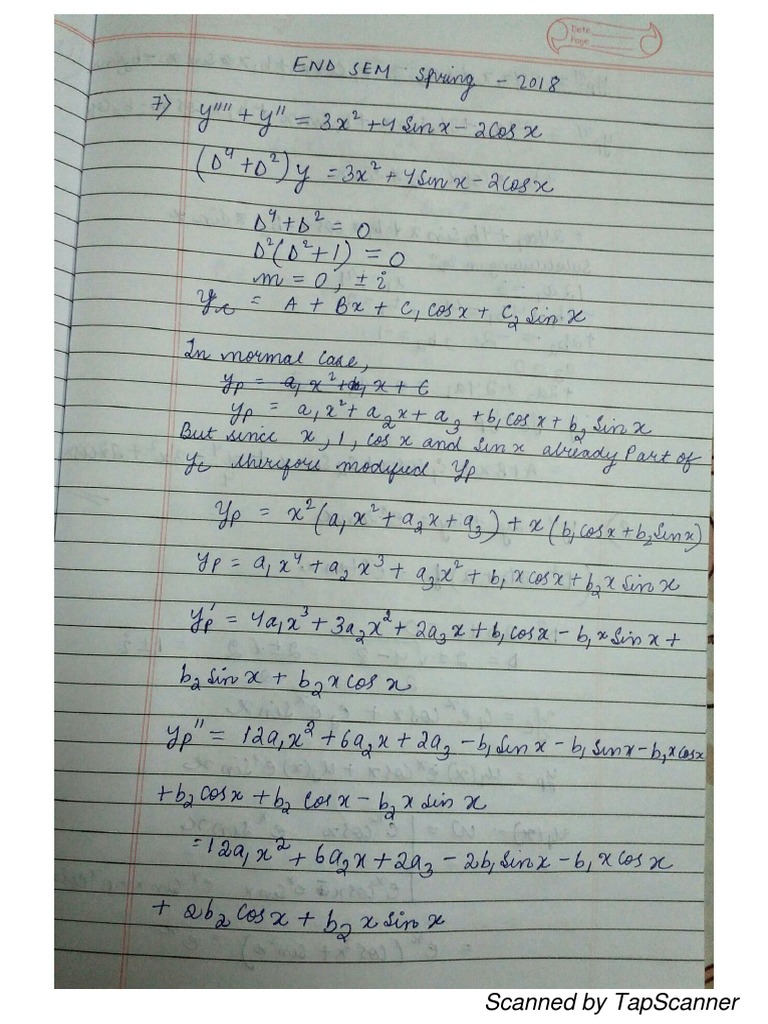 Date
Page
END SEM Spring - 2018
7) y'''' + y'' = 3x² + 4 Sin x - 2 Cos x
(D⁴ + D²) y = 3x² + 4 Sin x - 2 Cos x
D⁴ + D² = 0
D²(D² + 1) = 0
m = 0, ± i
y_c = A + Bx + C₁ Cos x + C₂ Sin x
In normal case,
y_p = a₁x² + a₂x + a₃ + b₁ Cos x + b₂ Sin x
But since x, 1, Cos x and Sin x already Part of
y_c therefore modified y_p
y_p = x²(a₁x² + a₂x + a₃) + x (b₁ Cos x + b₂ Sin x)
y_p = a₁x⁴ + a₂x³ + a₃x² + b₁ x Cos x + b₂ x Sin x
y_p' = 4a₁x³ + 3a₂x² + 2a₃x + b₁ Cos x - b₁ x Sin x +
b₂ Sin x + b₂ x Cos x
y_p'' = 12a₁x² + 6a₂x + 2a₃ - b₁ Sin x - b₁ Sin x - b₁ x Cos x
+ b₂ Cos x + b₂ Cos x - b₂ x Sin x
= 12a₁x² + 6a₂x + 2a₃ - 2b₁ Sin x - b₁ x Cos x
+ 2b₂ Cos x + b₂ x Sin x
Scanned by TapScanner